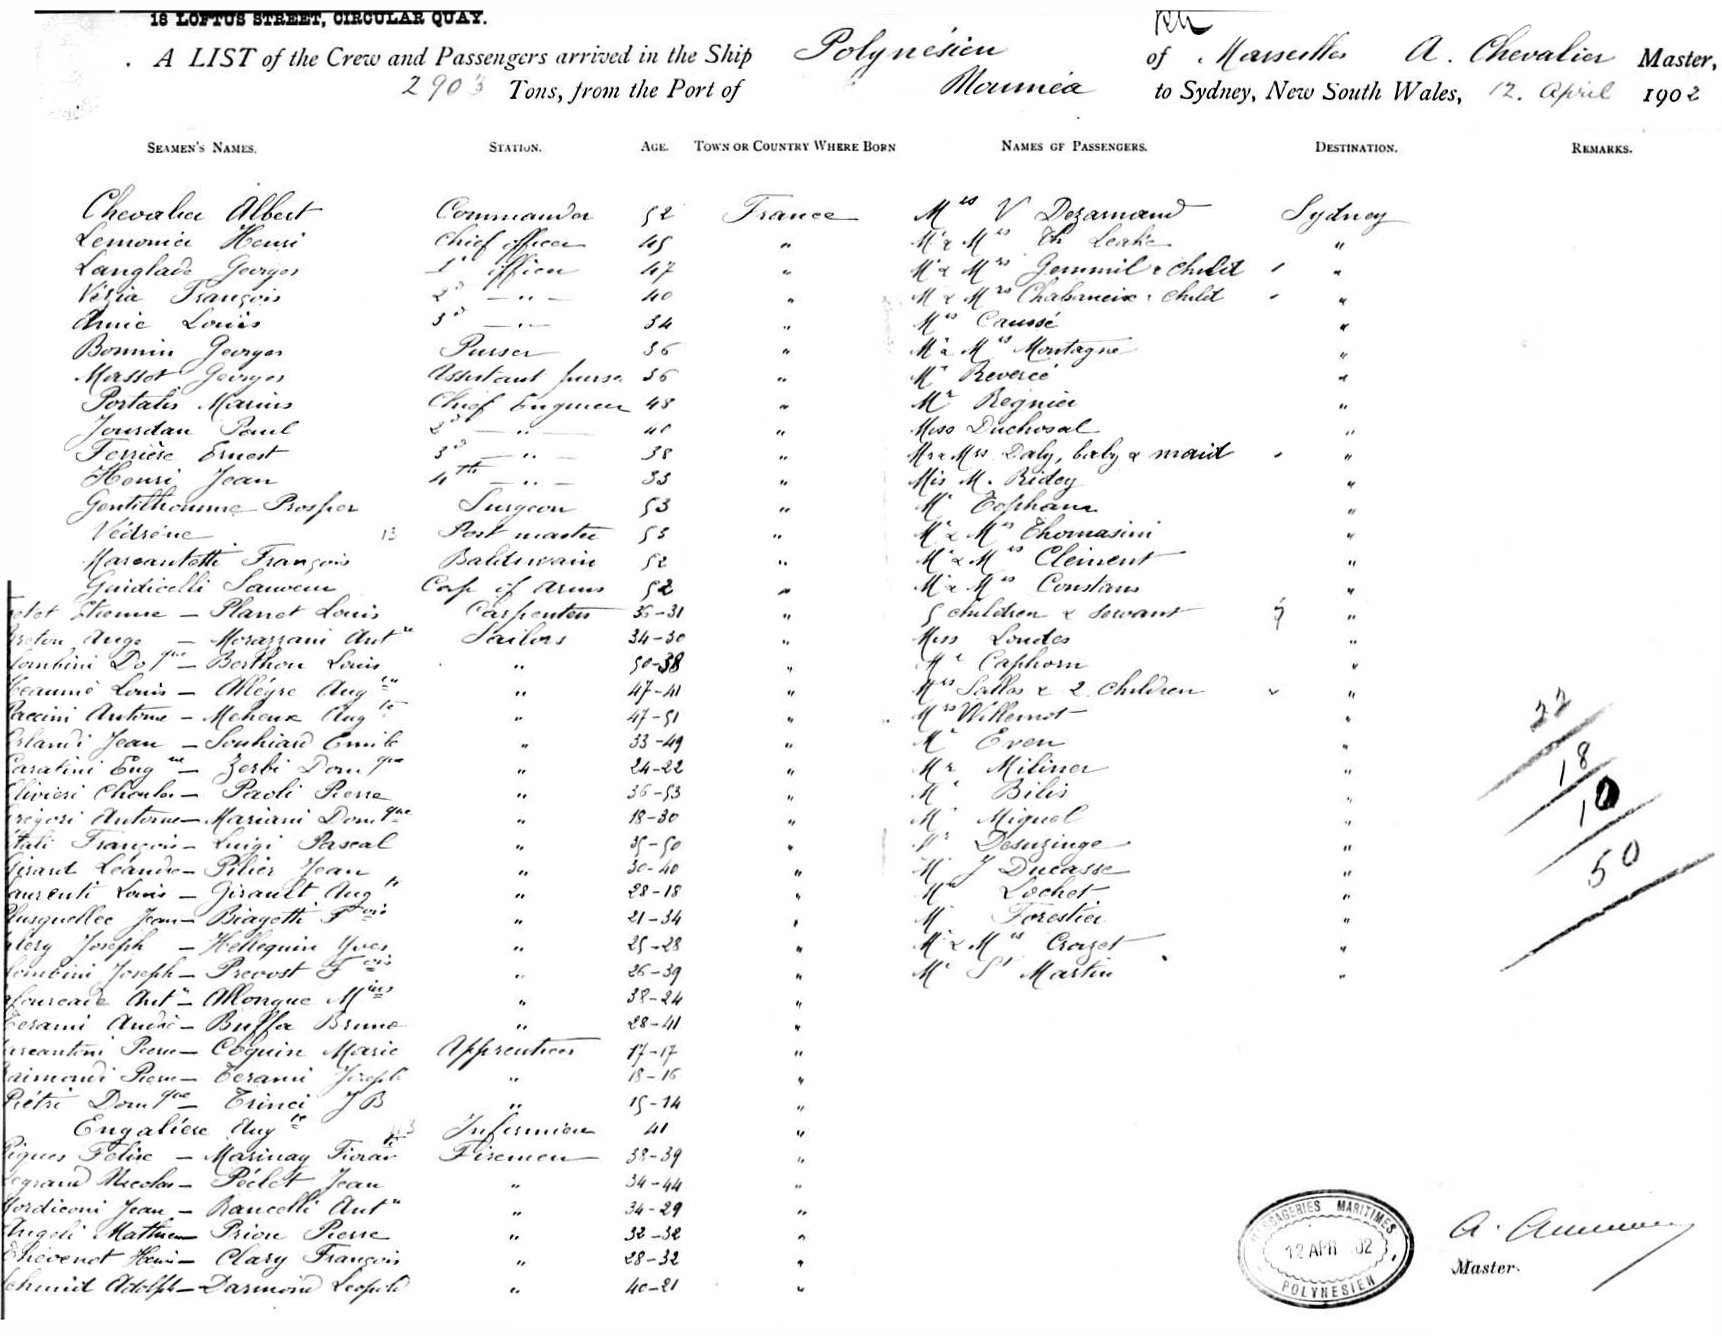 18 LOFTUS STREET, CIRCULAR QUAY.
A LIST of the Crew and Passengers arrived in the Ship Polynésien of Marseilles A. Chevalier Master,
2903 Tons, from the Port of Nouméa to Sydney, New South Wales, 12. April 1902
SEAMEN'S NAMES. STATION. AGE. TOWN OR COUNTRY WHERE BORN NAMES OF PASSENGERS. DESTINATION. REMARKS.
Chevalier Albert Commander 52 France Mrs V Dezarnaud Sydney
Lemonier Henri Chief officer 45 " Mr & Mrs Th Leake "
Langlade Georges 1st officer 47 " Mr & Mrs Gemmil & child "
François 2d — " — 40 " Mr & Mrs Chabaneix & child "
Amic Louis 3d — " — 34 " Mrs Caussé "
Bonnin Georges Purser 36 " Mr & Mrs Montagne "
Massot Georges Assistant purser 36 " Mr Revercé "
Portalis Marius Chief Engineer 48 " Mr Regnier "
Jourdan Paul 2d — " — 40 " Miss Duchosal "
Ferrière Ernest 3d — " — 38 " Mr & Mrs Daly, baby & maid "
Henri Jean 4th — " — 33 " Mis M. Ridey "
Gentilhomme Prosper Surgeon 53 " Mr Topham "
Védrène 13 Post master 53 " Mr & Mrs Thomasini "
Marcantetti François 52 " Mr & Mrs Clément "
Guidicelli Sauveur Corp of Arms 52 " Mr & Mrs Constans "
Etienne — Planet Louis Carpenters 36-31 " 5 children & servant "
Ange — Morazzani Antne Sailors 34-30 " Miss Loudes "
Doque — Berthou Louis " 50-38 " Mr Caphorn "
Louis — Allègre Augtin " 47-41 " Mrs Sallas & 2 children "
Antoine — Meheux Augte " 47-51 " Mrs Willemot "
Jean — Souhiard Emile " 33-49 " Mr Even "
Caratini Engne — Zerbi Domque " 24-22 " Mr Miliner "
Charles — Paoli Pierre " 36-53 " Mr Bilis "
Antoine — Mariani Domque " 18-30 " Mr Miguel "
François — Luigi Pascal " 35-50 " Mr Desuzinge "
Léandre — Pilier Jean " 30-40 " Mr J Ducasse "
Louis — Girault Augte " 28-18 " Mr Lochet "
Jean — Biagetti Fois " 21-34 " Mr Forestier "
Joseph — Hellequin Yves " 25-28 " Mr & Mrs Crozet "
Joseph — Prevost Fois " 26-39 " Mr St Martin "
Antne — Allongue Mius " 38-24 "
André — Buffa Bruno " 28-41 "
Pierre — Coquin Marie Apprentices 17-17 "
Pierre — Terami Joseph " 18-16 "
Piétri Domque — Trinci J B " 15-14 "
Engalière Augte Infirmier 41 "
Félix — Marinay Firemen 38-39 "
Nicolas — Péclet Jean " 34-44 "
Jean — Rancelli Antne " 34-29 "
Angeli Mathieu — Prion Pierre " 32-32 "
Thévenot Henri — Clary François " 28-32 "
Adolph — Darmond Léopold " 40-21 "
22
18
10
50
MESSAGERIES MARITIMES
12 APR 02
POLYNESIEN
Master.